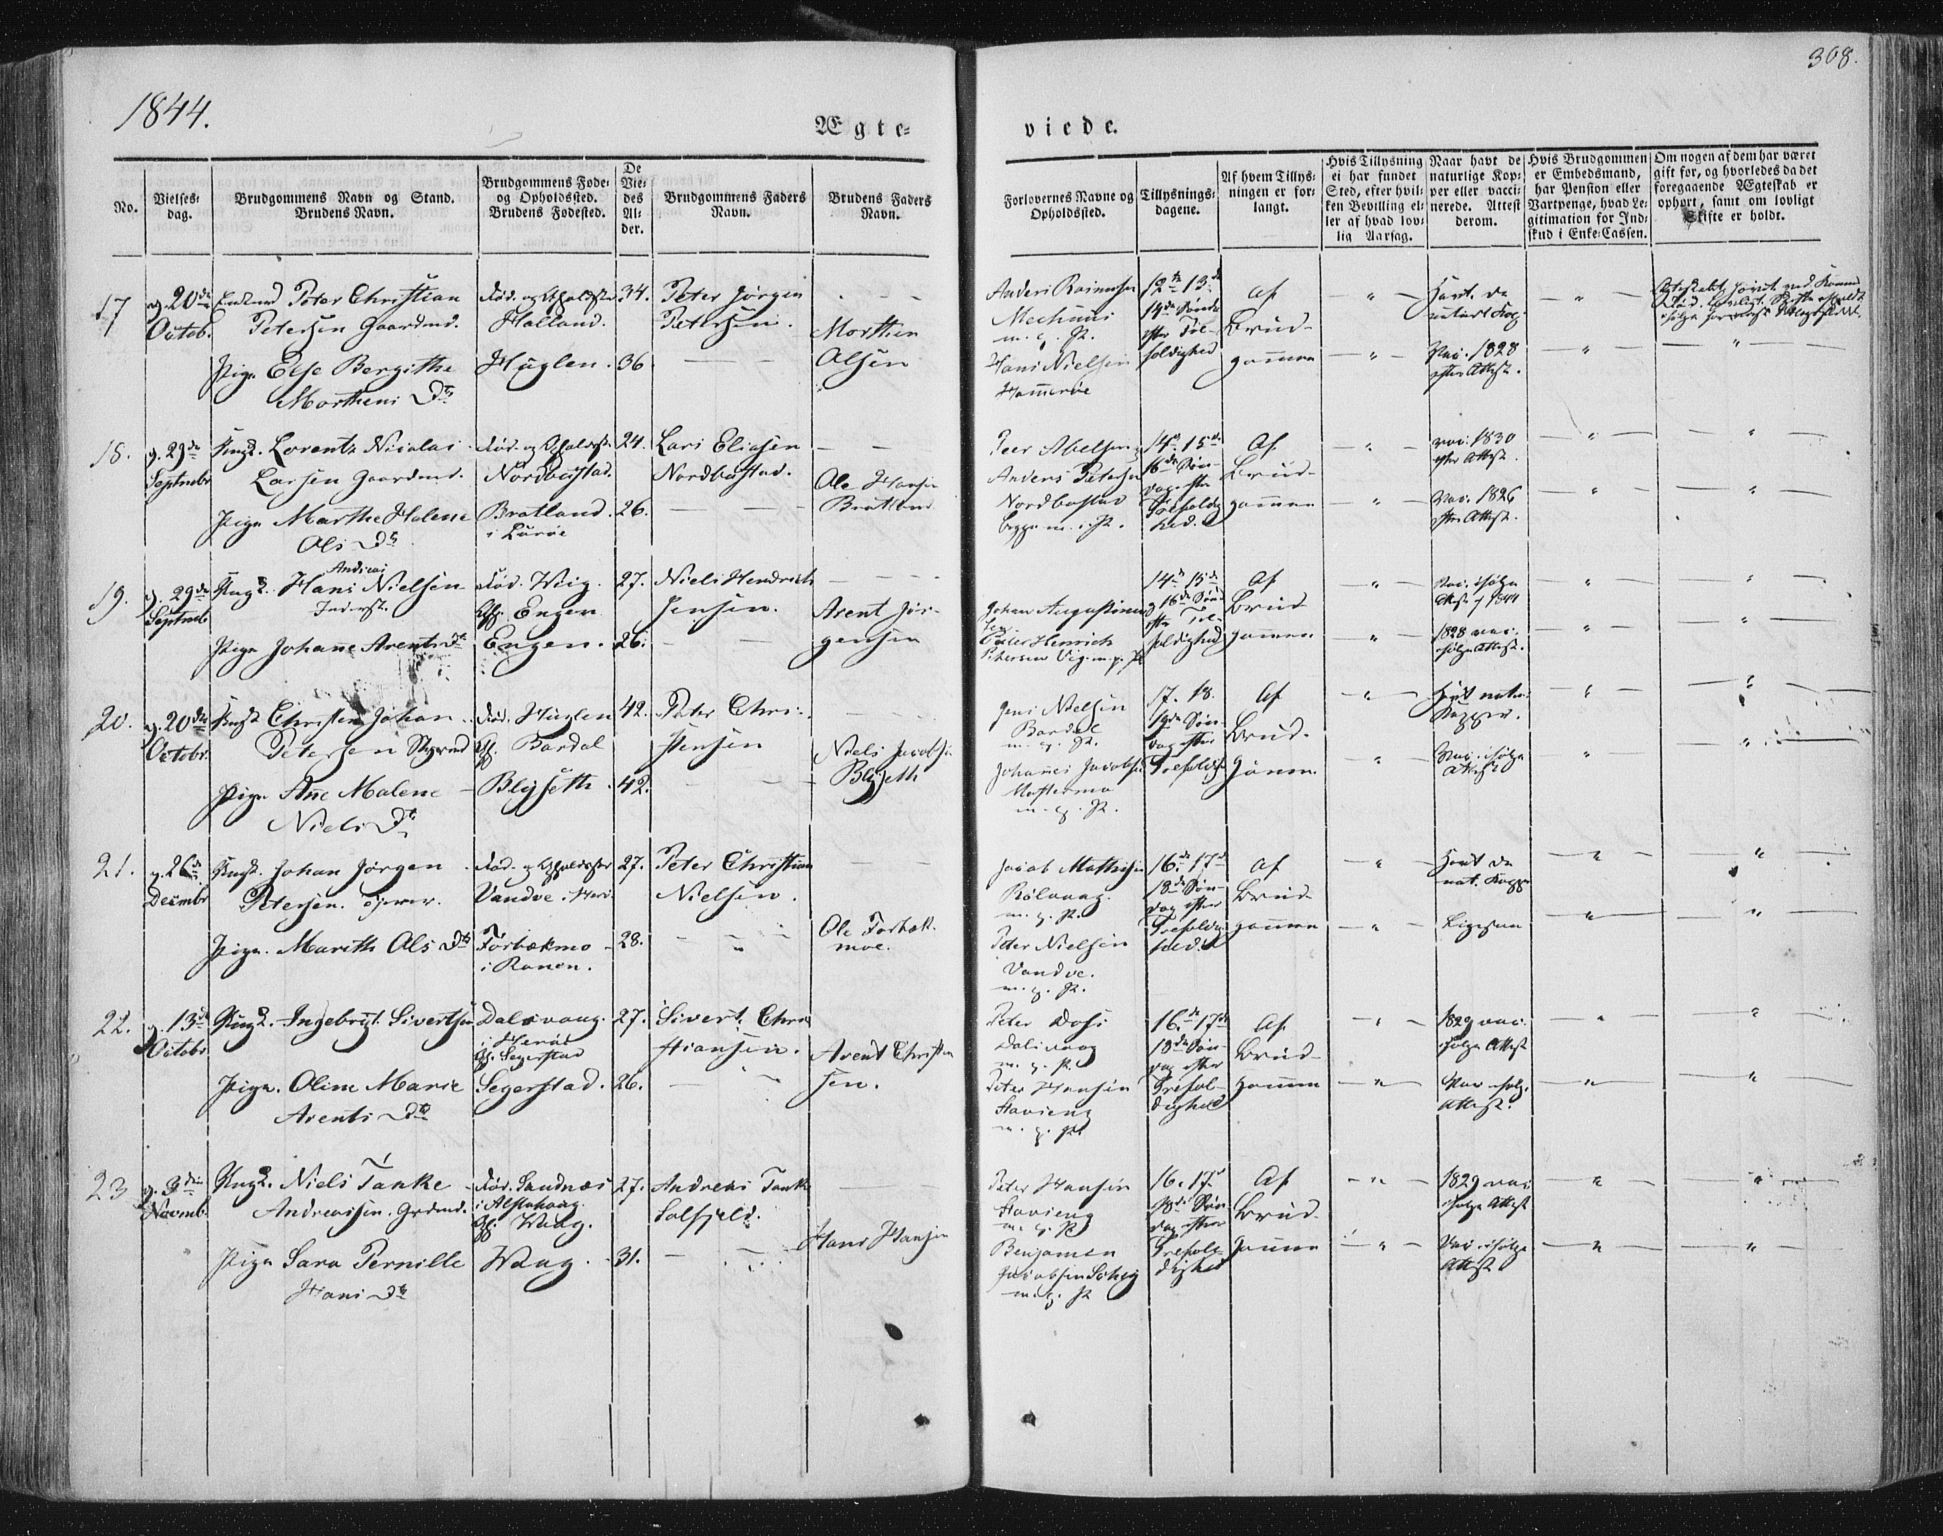 1844.
308.
Ægte-
viede.
No.
Vielses-
dag.
Brudgommens Navn og Stand.
Brudens Navn.
Brudgommens Føde-
og Opholdssted.
Brudens Fødested.
De
Vie-
des
Al-
der.
Brudgommens Faders
Navn.
Brudens Faders
Navn.
Forlovernes Navne og
Opholdssted.
Tillysnings-
dagene.
Af hvem Tillys-
ningen er for-
langt.
Hvis Tillysning
ei har fundet
Sted, efter hvil-
ken Bevilling el-
ler af hvad lov-
lig Aarsag.
Naar havt de
naturlige Kop-
per eller vacci-
nerede. Attest
derom.
Hvis Brudgommen
er Embedsmand,
har Pension eller
Vartpenge, hvad Le-
gitimation for Ind-
skud i Enke-Cassen.
Om nogen af dem har været
gift før, og hvorledes da det
foregaaende Ægteskab er
ophørt, samt om lovligt
Skifte er holdt.
17
20de
Octob.
Peter Christian
Petersen Gaardmd.
Pige Else Bergithe
Morthens Dtr
Fød. og Opholdsster
Halland.
Huglen.
34.
36
Peter Jørgen
Petersen.
Morthen
Olsen
Anders Rasmusen
m. p. P.
Hans Nielsen
Hammerøe
12te 13de
14de Søndag
efter Tre-
foldighed
Af
Brud-
gommen
Havt de
naturl. Kop.
Vac. 1828
efter Attest.
18.
29de
Septembr
Ungk. Lorents Nicolai
Larsen Gaardmd.
Pige Marthe Helene
Ols Dtr
Fød. og Opholdsst.
Nordbostad.
Bratland.
i Lurøe
24.
26.
Lars Eliasen
Nordbostad.
Ole Hansen
Bratland
Peer Abelsen
Anders Petersen
Nordbostad
begge m. p. P.
14de 15de
16de Søn-
dag efter
Trefoldig
hed.
Af
Brud-
gommen
vac. 1830
efter Attest.
Vac. 1826
efter Attest.
19.
29de
Septemb
Andreas
Ungk. Hans Nielsen
Inderst.
Pige Johanne Arents Dtr
Fød. Wiig.
Engen
Engen.
27.
26.
Niels Hendrich
Jensen.
Arent Jør-
gensen
Johan Augustinu
sen.
Peter Henrich
Petersen Vig. m. p. P.
14de 15de
16de Sønd
efter Tre-
foldighed
Af
Brud
gommen
Vac. ifølge
Attest 1844
1828 vac.
ifølge Attest.
20.
20de
Octobr.
Ungk. Christen Johan
Petersen
Pige Ane Malene
Niels Dtr
Fød. Huglen
Bardal
Blyseth.
42.
42.
Peter Chri-
stensen
Niels Jacobsen
Blyseth
Jens Nielsen
Bardal
m. p. P.
Johannes Jacobsen
m. p. P.
17. 18.
19de Søn-
dag efter
Trefoldigh
Af
Brud-
gommen
Havt natur.
Kopper.
Vac. ifølge
Attest
21.
26de
Decembr
Ungk. Johan Jørgen
Petersen.
Pige. Marith Ols Dtr
Fød. og Opholdsster
Vandve. Herø.
Forbækmo
i Ranen.
27.
28.
Peter Christian
Nielsen.
Ole Forbæk-
moe.
Jacob Mathisen
Rølvaag.
m. p. P.
Peter Nielsen
Vandve.
m. p. P.
16de 17de
18de Søn-
dag efter
Trefoldig
hed.
Af
Brud-
gommen
Havt de
nat. Kopper
Ligesaa
22.
13de
Octobr
Ungk. Ingebrigt Sivertsen
Pige. Oline Marie
Arents Dtr
Dalsvaag.
i Herøe
Segerstad
Segerstad.
27.
26.
Sivert Chri
stiansen.
Arent Christen
sen.
Peter Dass
Dalsvaag
m. p. P.
Peter Hansen
Stavseng
m. p. P.
16de 17de
18de Søn-
dag efter
Trefol-
dighed
Af
Brud-
gommen
1829 vac.
ifølge Attest
Vac. ifølg.
Attest.
23
3die
Novemb.
Ungk. Niels Tanke
Andreassen. Grdmd.
Pige Sara Pernille
Hans Dtr
Fød. Sandnæs
i Alstahoug.
Waag.
Waag.
27.
31.
Andreas Tanke
Solfjeld.
Hans Hansen
Peter Hansen
Stavseng
m. p. P.
Benjamin
Jacobsen
m. p. P
16. 17de
18de Søn
dag efter
Trefol-
dighed
Af
Brud
gommen
1829 vac.
ifølge Attest
Vac. ifølge
Attest